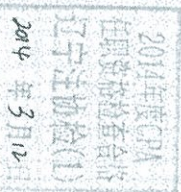 2014年度CPA
任职资格检查合格
辽宁注协检(1)
2014 年 3月12